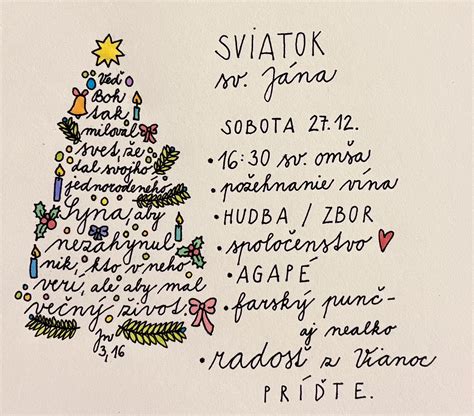 Veď
Boh
tak
miloval
svet, že
dal svojho
jednorodeného
Syna, aby
nezahynul
nik, kto v neho
verí, ale aby mal
večný život.
Jn
3,16
SVIATOK
sv. Jána
SOBOTA 27.12.
• 16:30 sv. omša
• požehnanie vína
• HUDBA / ZBOR
• spoločenstvo
• AGAPÉ
• farský punč-
aj nealko
• radosť z Vianoc
PRÍĎTE.